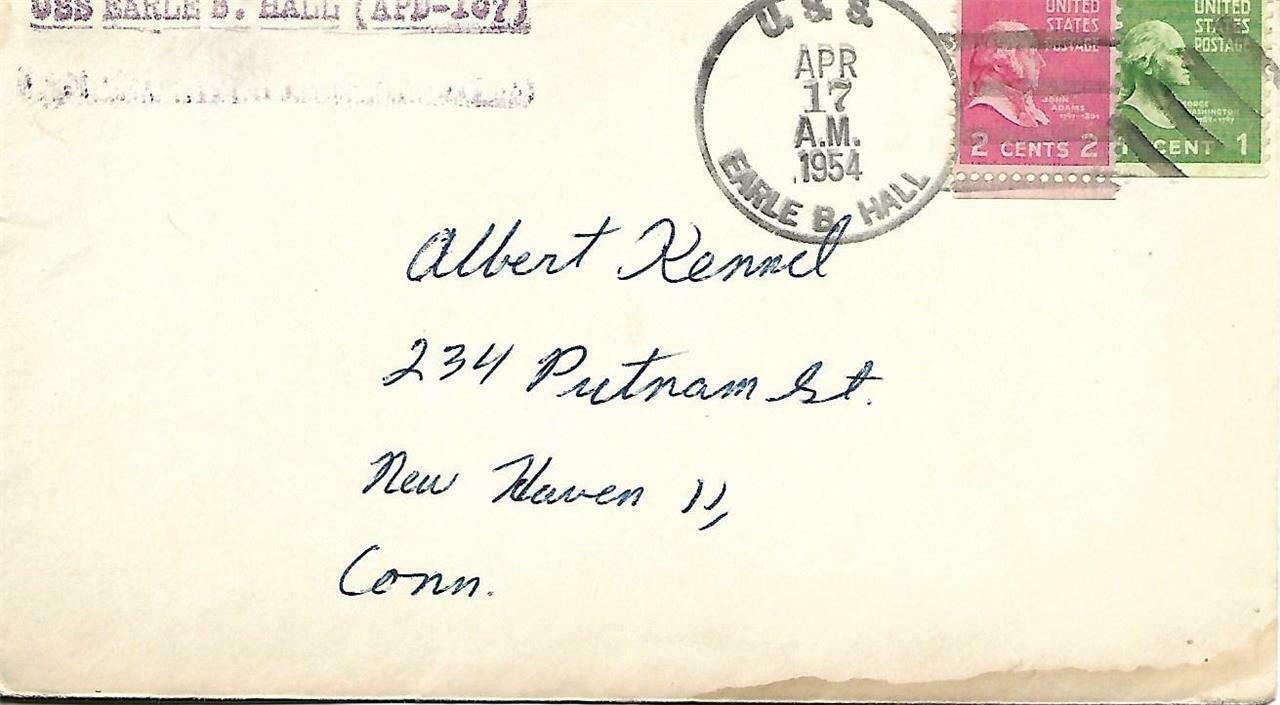 USS EARLE B. HALL (APD-107)
U.S.S.
APR
17
A.M.
1954
EARLE B. HALL
UNITED
STATES
POSTAGE
JOHN
ADAMS
2 CENTS 2
UNITED
STATES
POSTAGE
GEORGE
WASHINGTON
1 CENT 1
Albert Kennel
234 Putnam St.
New Haven 11,
Conn.